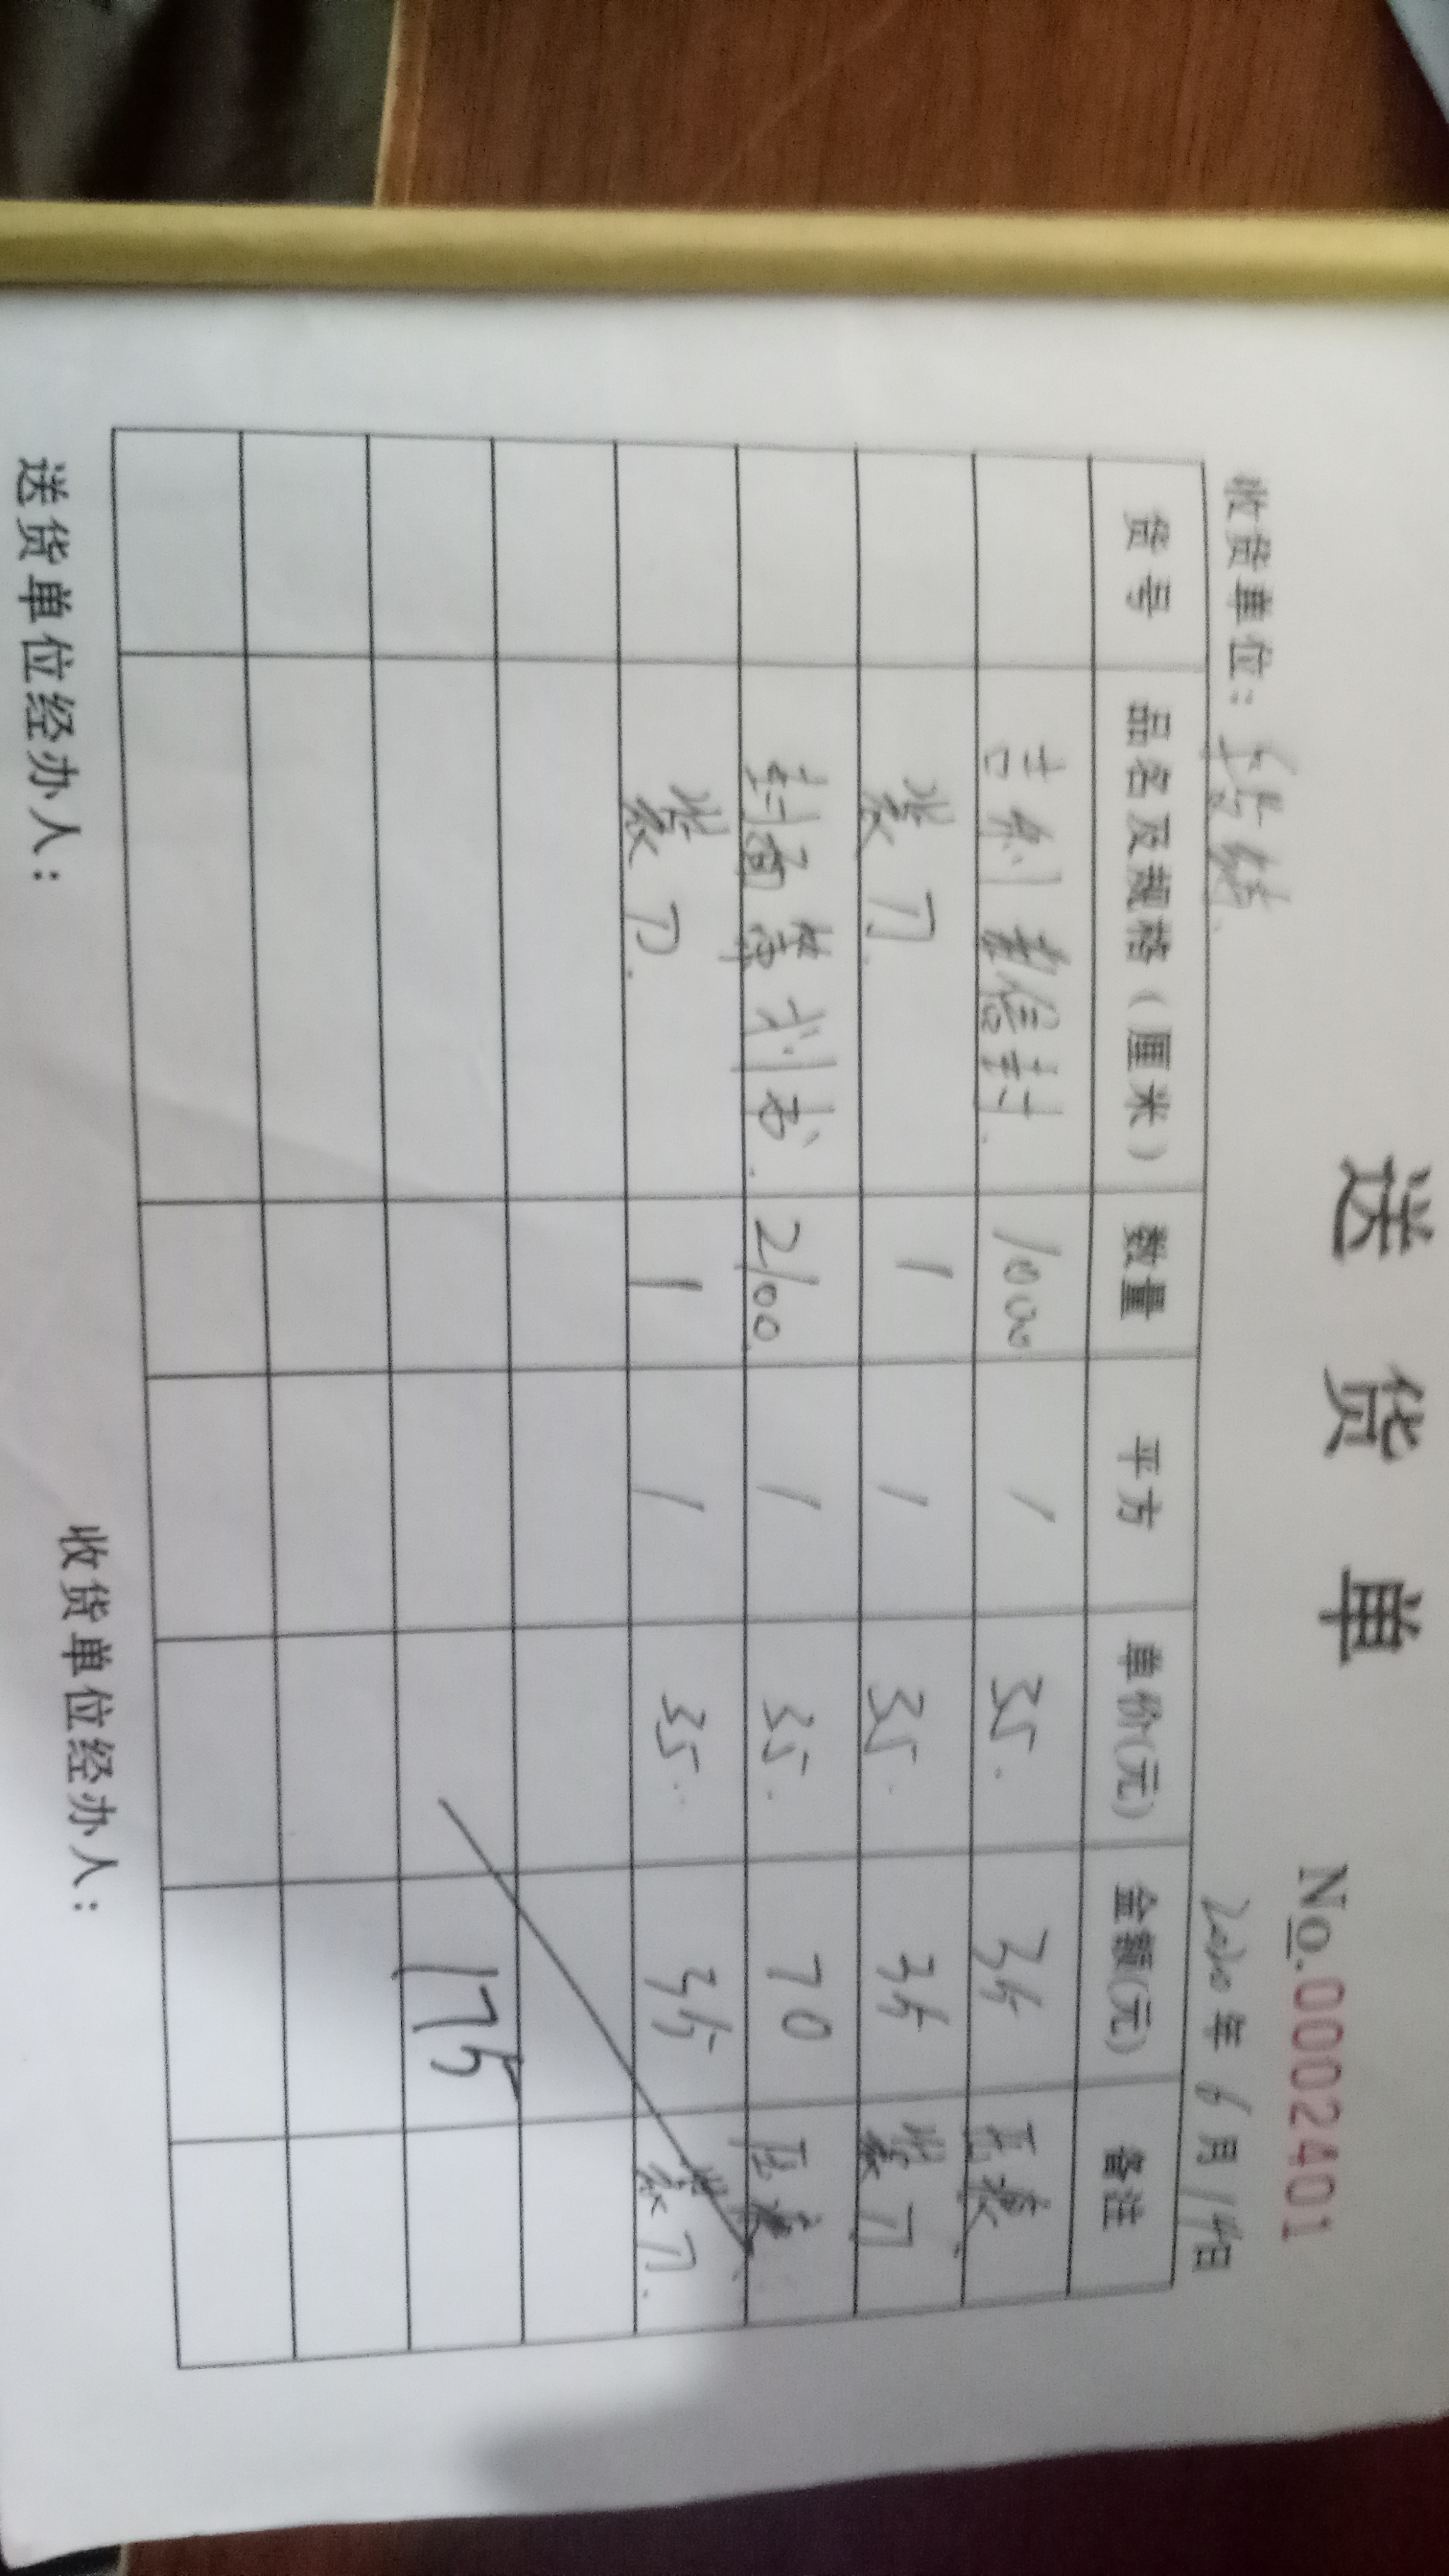 送货单
No.0002401
收货单位：
2020年6月1日
货号 品名及规格（厘米） 数量 平方 单价(元) 金额(元) 备注
吉利 信封. 1000 / 35. 35 压痕
装刀. 1 / 35. 35 装刀
封面 书. 2100 / 35. 70 压痕
装刀. 1 / 35. 35 装刀.
175
送货单位经办人： 收货单位经办人：